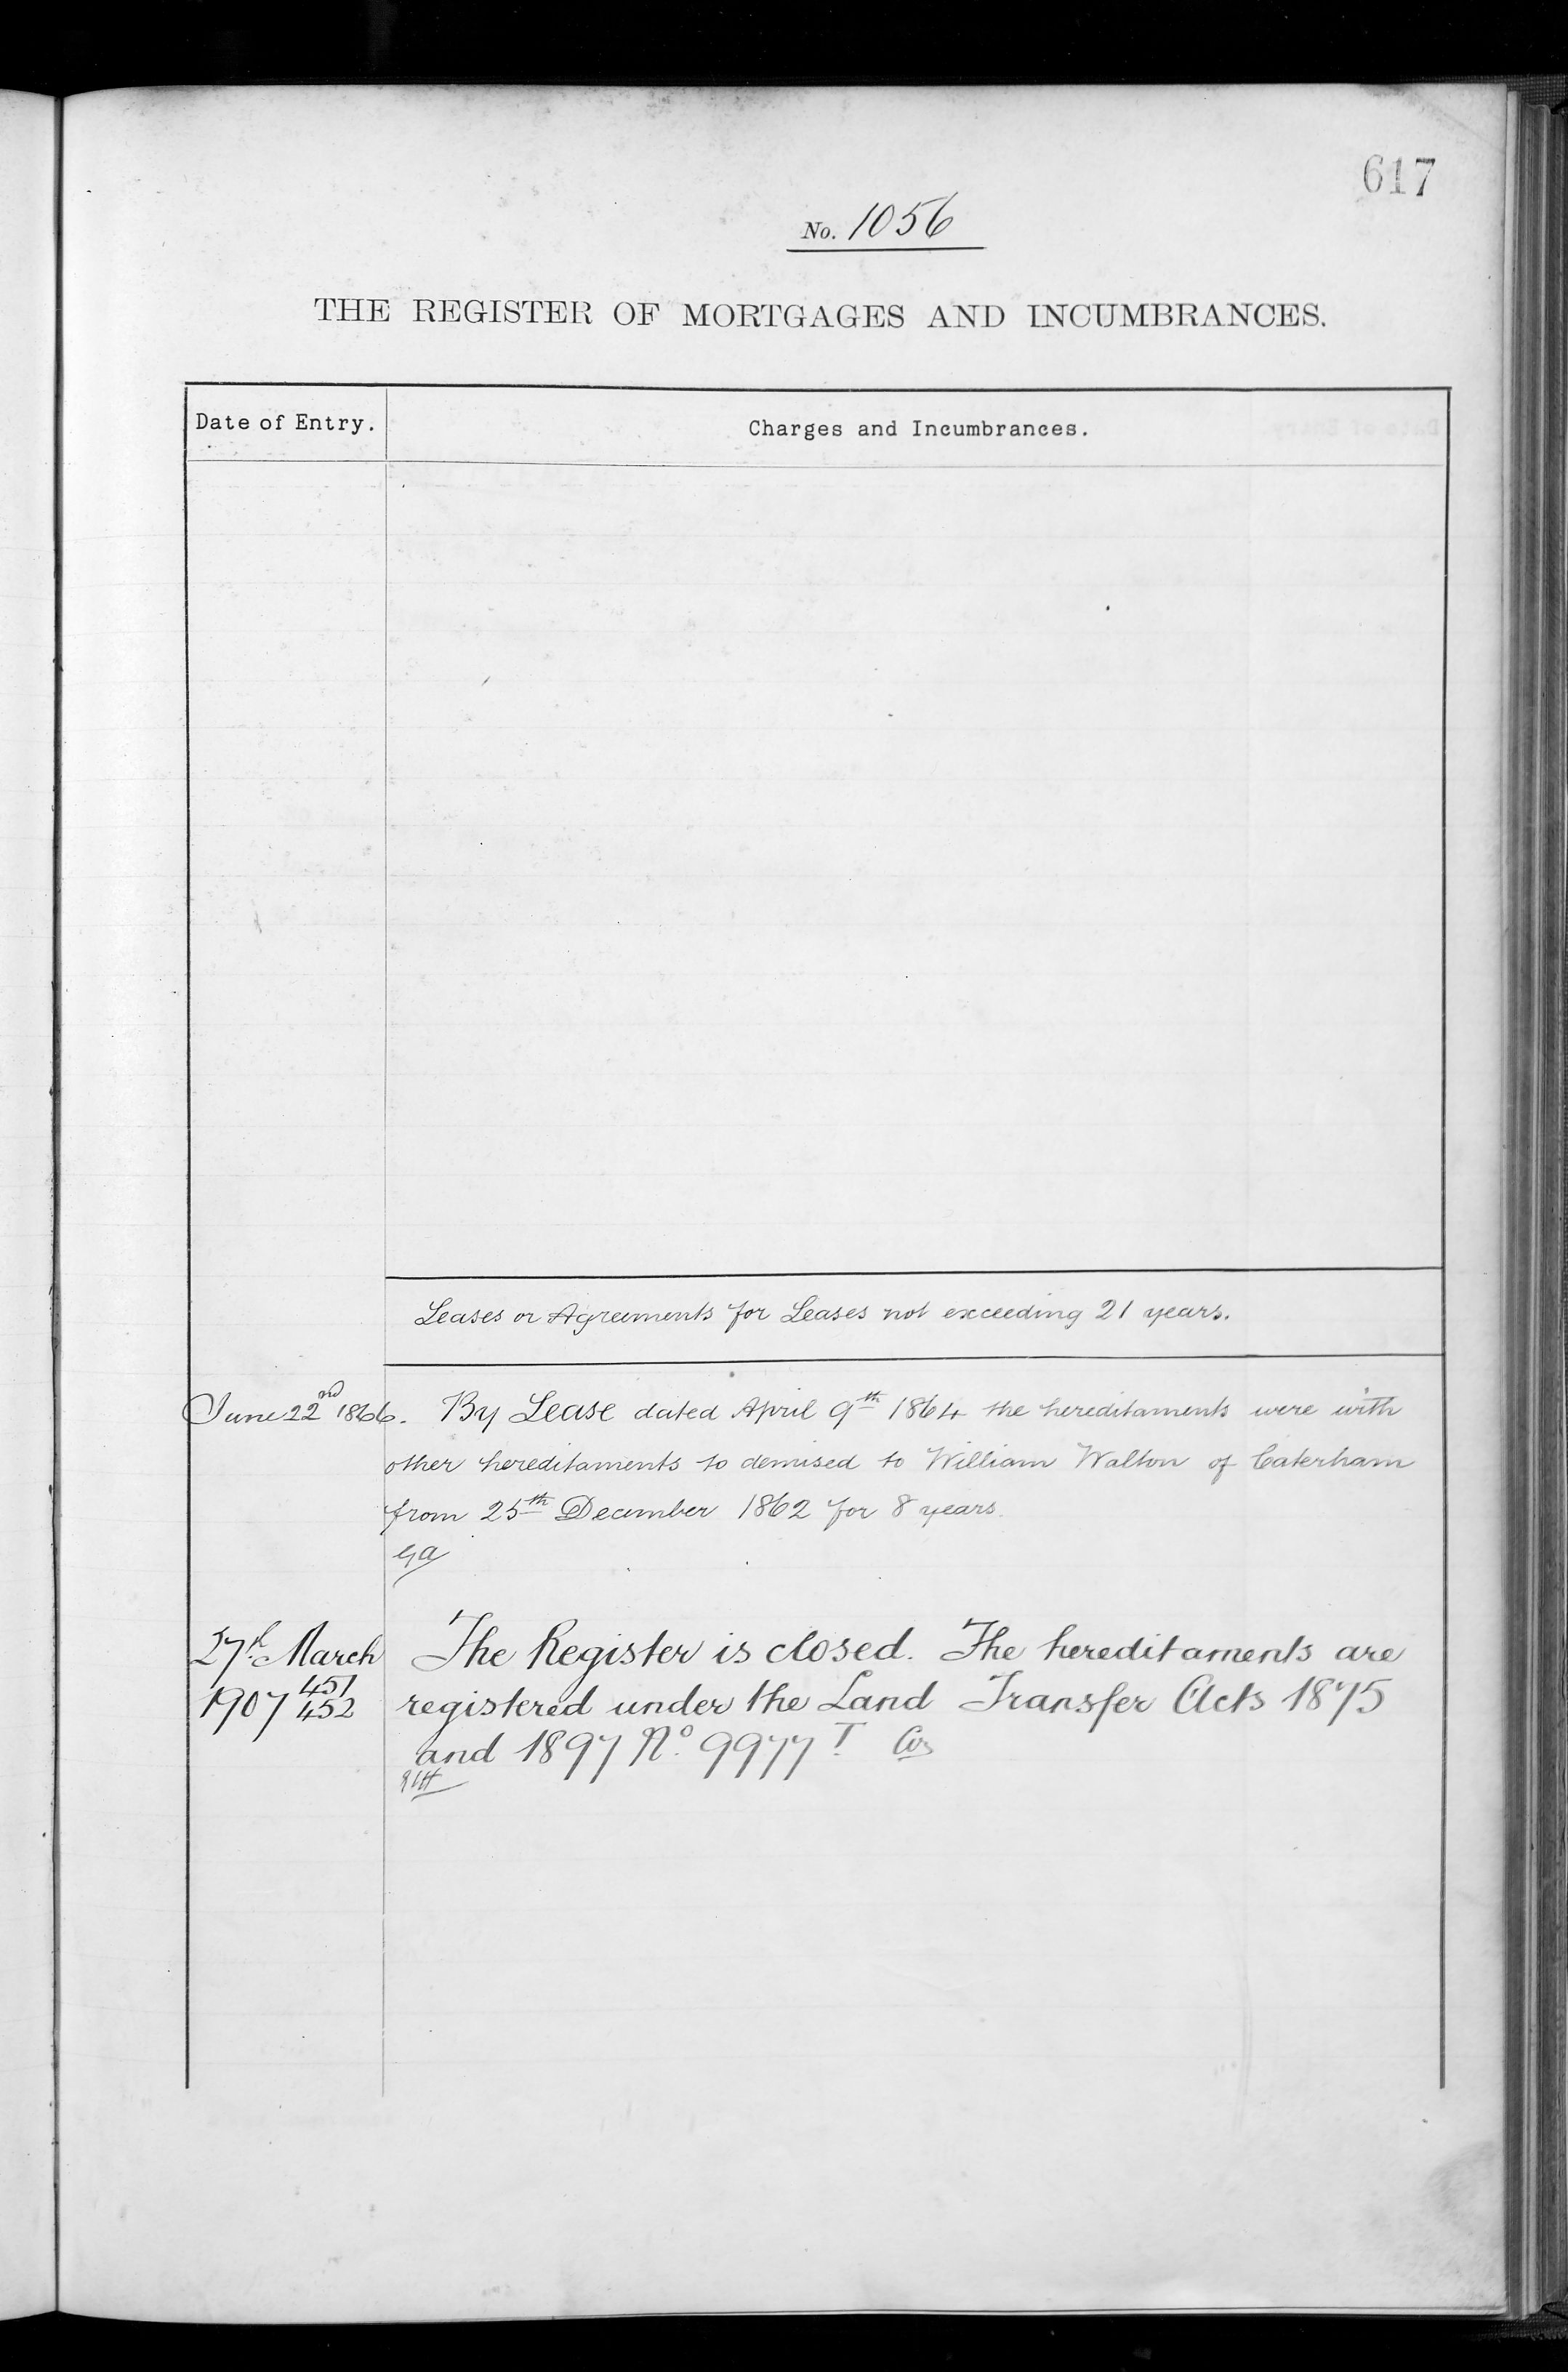 617
No. 1056
THE REGISTER OF MORTGAGES AND INCUMBRANCES.
Date of Entry.
Charges and Incumbrances.
Leases or Agreements for Leases not exceeding 21 years.
June 22nd 1866. By Lease dated April 9th 1864 the hereditaments were with
other hereditaments to demised to William Walton of Caterham
from 25th December 1862 for 8 years.
GA
27th March The Register is closed. The hereditaments are
1907 451 452 registered under the Land Transfer Acts 1875
and 1897 No. 9977 T